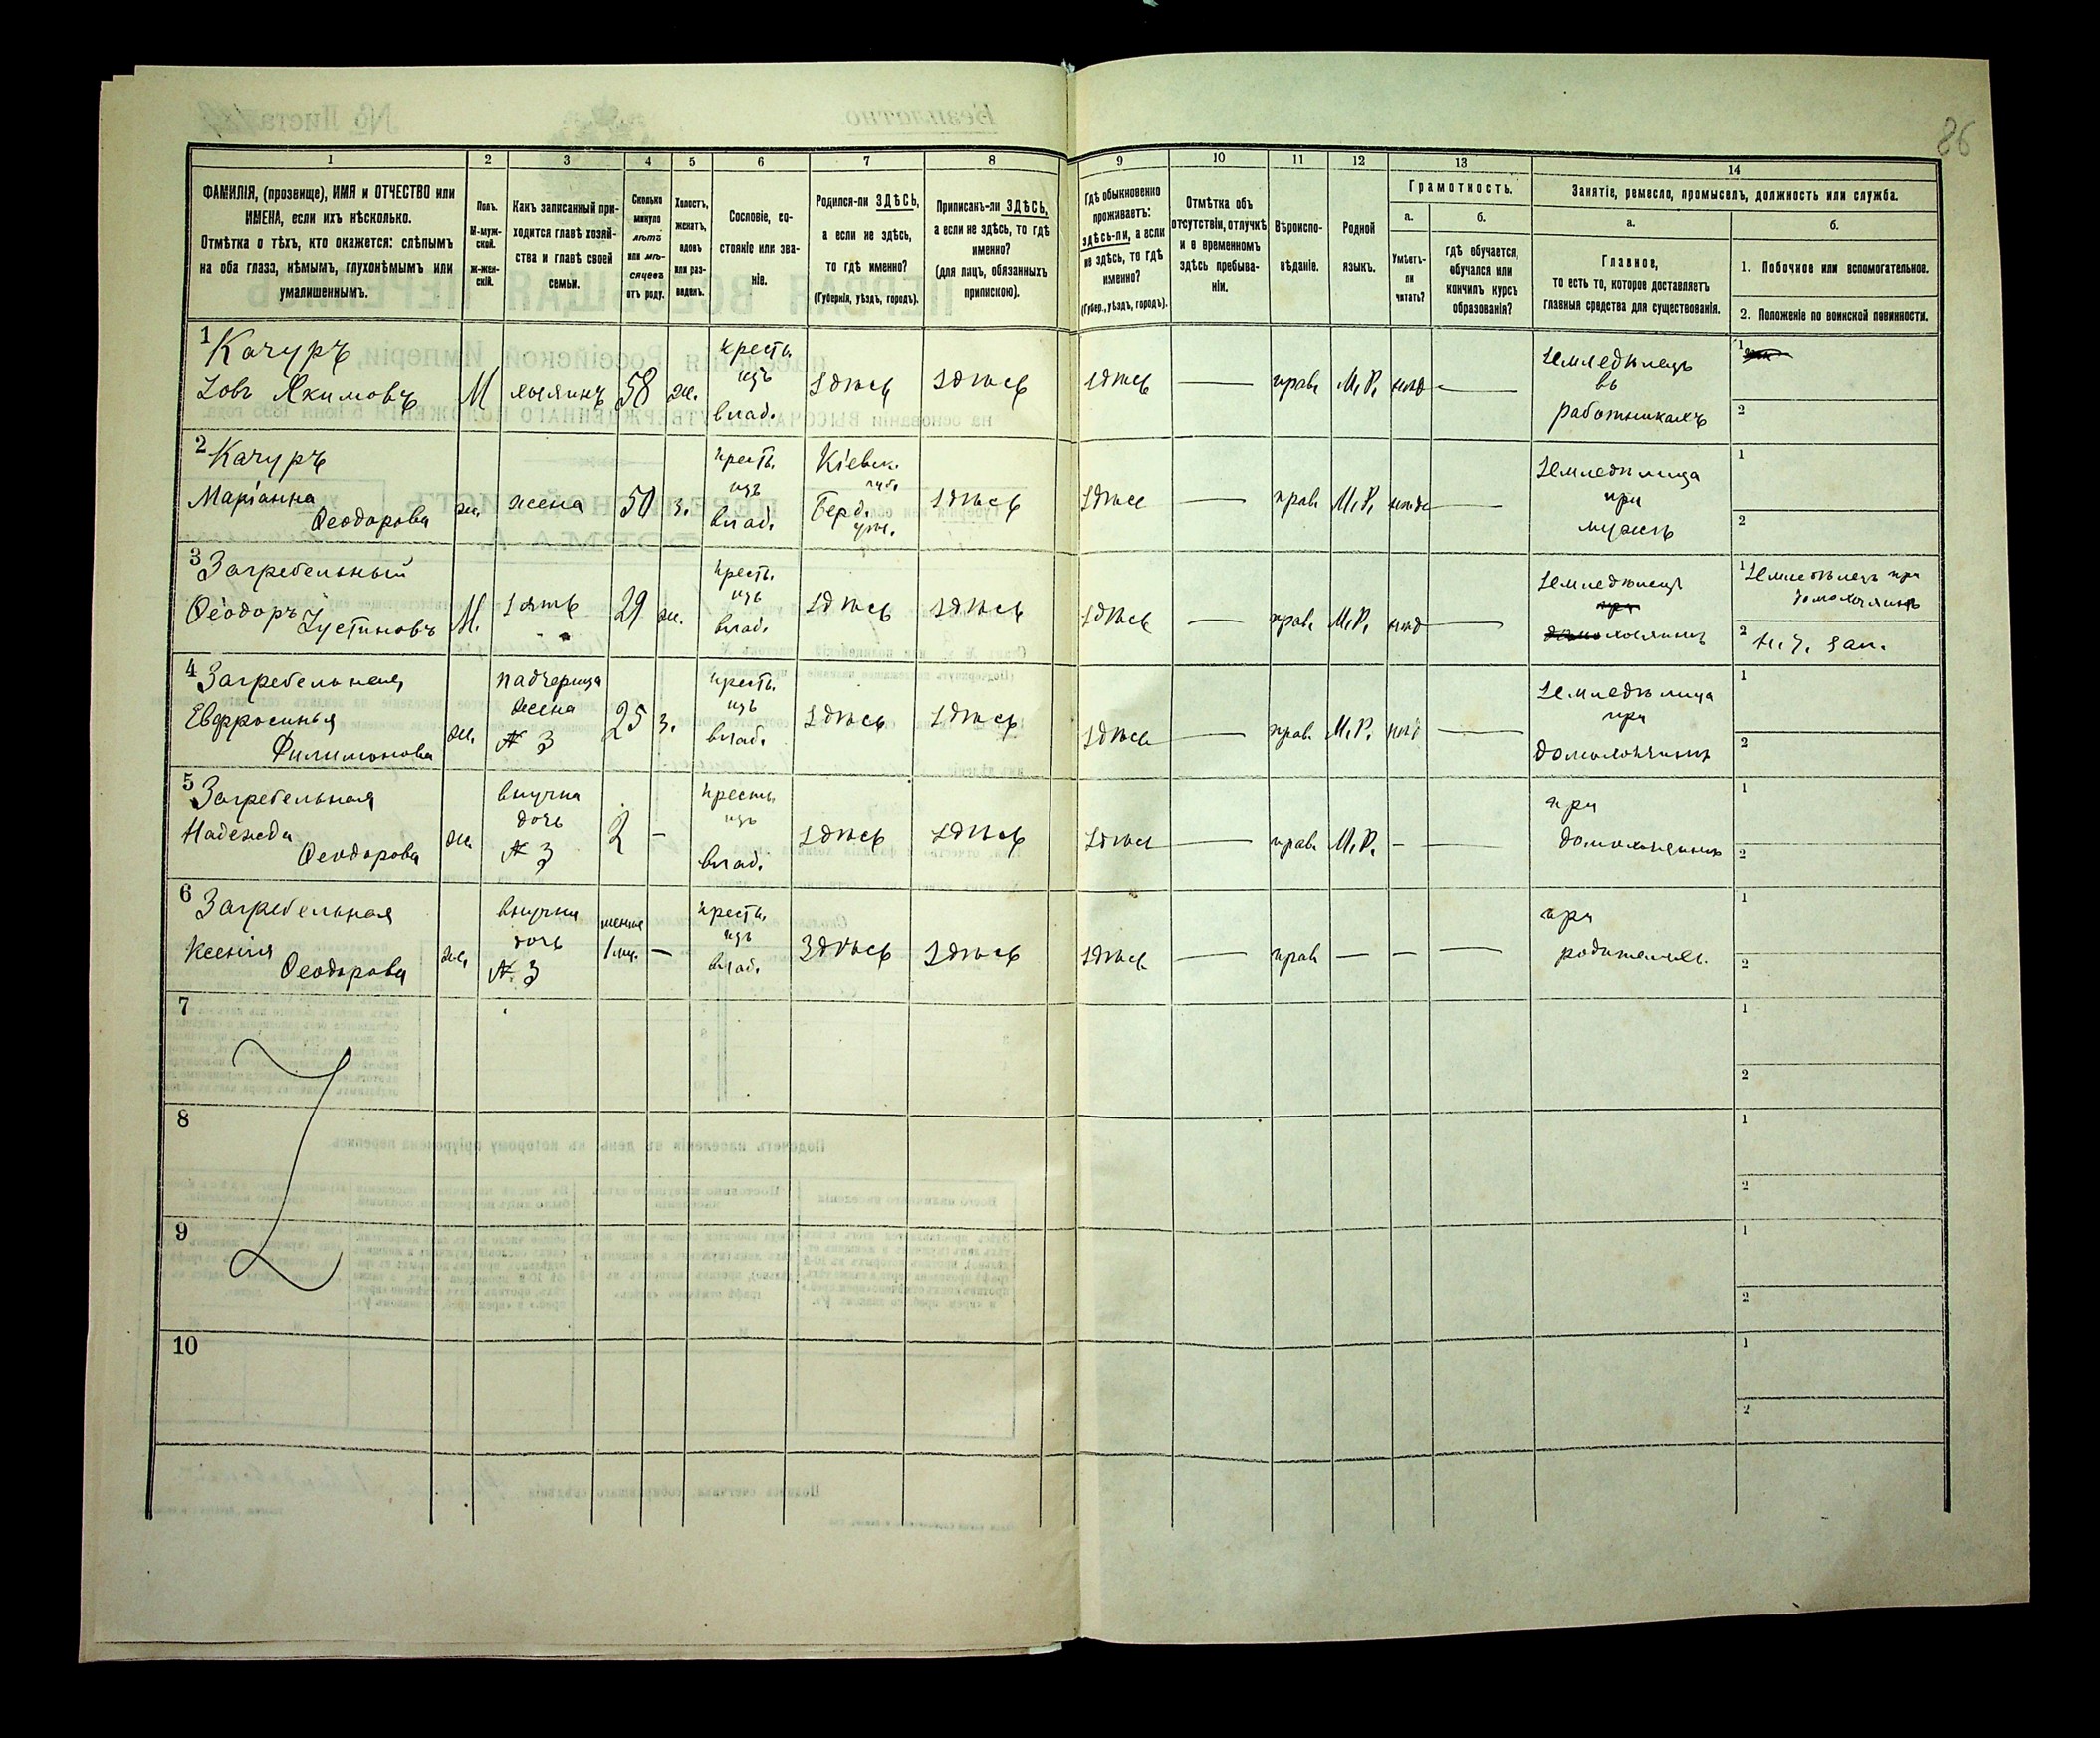 86
1 2 3 4 5 6 7 8 9 10 11 12 13 14
ФАМИЛІЯ, (прозвище), ИМЯ и ОТЧЕСТВО или ИМЕНА, если ихъ нѣсколько.
Отмѣтка о тѣхъ, кто окажется: слѣпымъ на оба глаза, нѣмымъ, глухонѣмымъ или умалишеннымъ.
Полъ.
М-мужской.
Ж-женскій.
Какъ записанный приходится главѣ хозяйства и главѣ своей семьи.
Сколько минуло лѣтъ или мѣсяцевъ отъ роду.
Холостъ, женатъ, вдовъ или разведенъ.
Сословіе, состояніе или званіе.
Родился-ли ЗДѢСЬ, а если не здѣсь, то гдѣ именно?
(Губернія, уѣздъ, городъ).
Приписанъ-ли ЗДѢСЬ, а если не здѣсь, то гдѣ именно?
(для лицъ, обязанныхъ припискою).
Гдѣ обыкновенно проживаетъ: здѣсь-ли, а если не здѣсь, то гдѣ именно?
(Губер., уѣздъ, городъ).
Отмѣтка объ отсутствіи, отлучкѣ и о временномъ здѣсь пребываніи.
Вѣроисповѣданіе.
Родной языкъ.
Грамотность.
а.
Умѣетъ-ли читать?
б.
гдѣ обучается, обучался или кончилъ курсъ образованія?
Занятіе, ремесло, промыселъ, должность или служба.
а.
Главное,
то есть то, которое доставляетъ главныя средства для существованія.
б.
1. Побочное или вспомогательное.
2. Положеніе по воинской повинности.
1 Качуръ
Іовъ Якимовъ М хозяинъ 58 ж. крест. изъ влад. здѣсь здѣсь здѣсь — прав. М.Р. нѣт — Земледѣлецъ въ работникахъ 1 2
2 Качуръ
Маріанна Ѳеодорова ж. жена 50 з. крест. изъ влад. Кіевск. губ. Берд. уѣз. здѣсь здѣсь — прав. М.Р. нѣт — Земледѣлица при мужѣ 1 2
3 Загребельный
Ѳеодоръ Іустиновъ М. зять 29 ж. крест. изъ влад. здѣсь здѣсь здѣсь — прав. М.Р. нѣт — Земледѣлецъ хозяинъ 1 Земледѣлецъ при домохозяинѣ 2 н. ч. зап.
4 Загребельная
Евфросинья Филимонова ж. падчерица жена № 3 25 з. крест. изъ влад. здѣсь здѣсь здѣсь — прав. М.Р. нѣт — Земледѣлица при домохозяинѣ 1 2
5 Загребельная
Надежда Ѳеодорова ж. внучка дочь № 3 2 - крест. изъ влад. здѣсь здѣсь здѣсь — прав. М.Р. - — при домохозяинѣ 1 2
6 Загребельная
Ксенія Ѳеодорова ж. внучка дочь № 3 менѣе 1 мѣс. — крест. изъ влад. Здѣсь здѣсь здѣсь — прав — — — при родителяхъ. 1 2
7 1 2
8 1 2
9 1 2
10 1 2